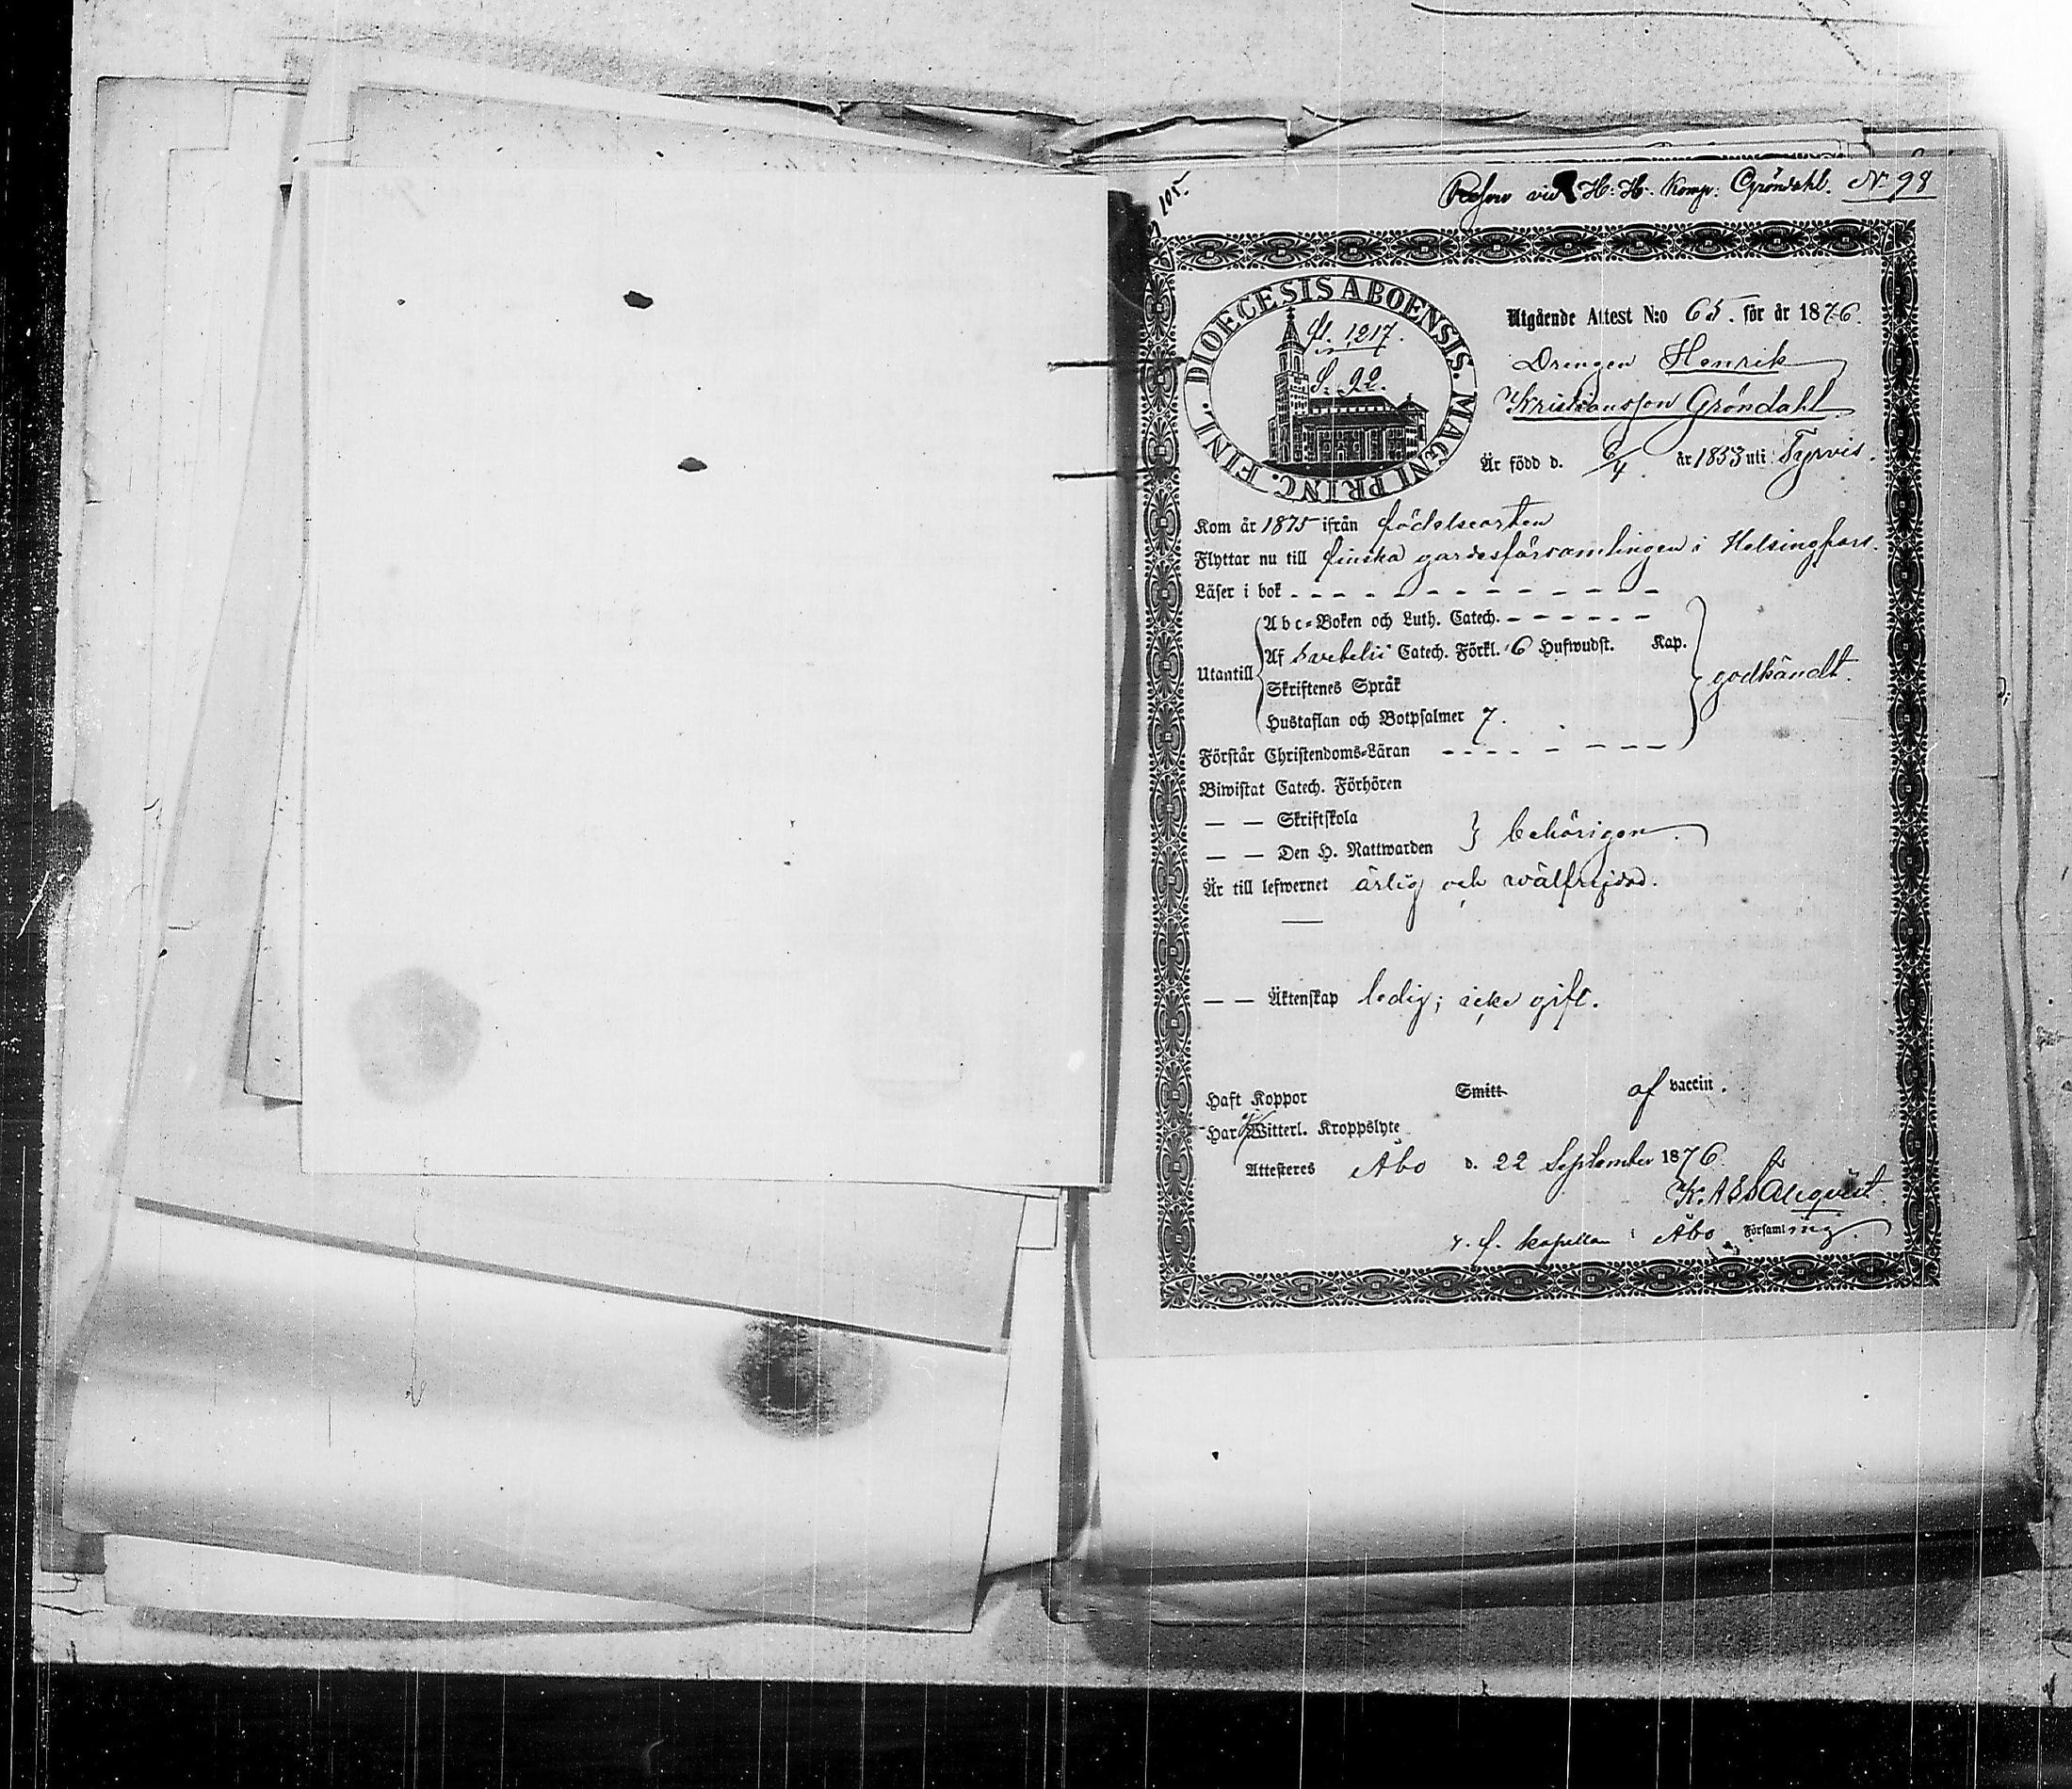 105.
vid H. H. Komp. Gröndahl. No 98
DIOECESIS ABOENSIS. MAGNI PRINC. FINL.
fl. 1217.
S. 92.
Utgående Attest N:o 65. för år 1876.
Drengen Henrik
Kristiansson Gröndahl
Är född d. 6/4 år 1853 uti Tyrvis.
Kom år 1875 ifrån födelseorten
Flyttar nu till finska gardesförsamlingen i Helsingfors.
Läser i bok
Abc-Boken och Luth. Catech.
Utantill Af Svebelii Catech. Förkl. 6 Hufwudst. Kap. godkändt.
Skriftenes Språk
Hustaflan och Botpsalmer 7.
Förstår Christendoms-Läran
Biwistat Catech. Förhören
— — Skriftskola
— — Den H. Nattwarden } behörigen.
Är till lefwernet ärlig och wälfrejdad.
— — Äktenskap ledig; icke gift.
Haft Koppor Smitt af vaccin.
Har Witterl. Kroppslyte
Attesteres Åbo d. 22 September 1876.
v. f. kapellan i Åbo Församling.